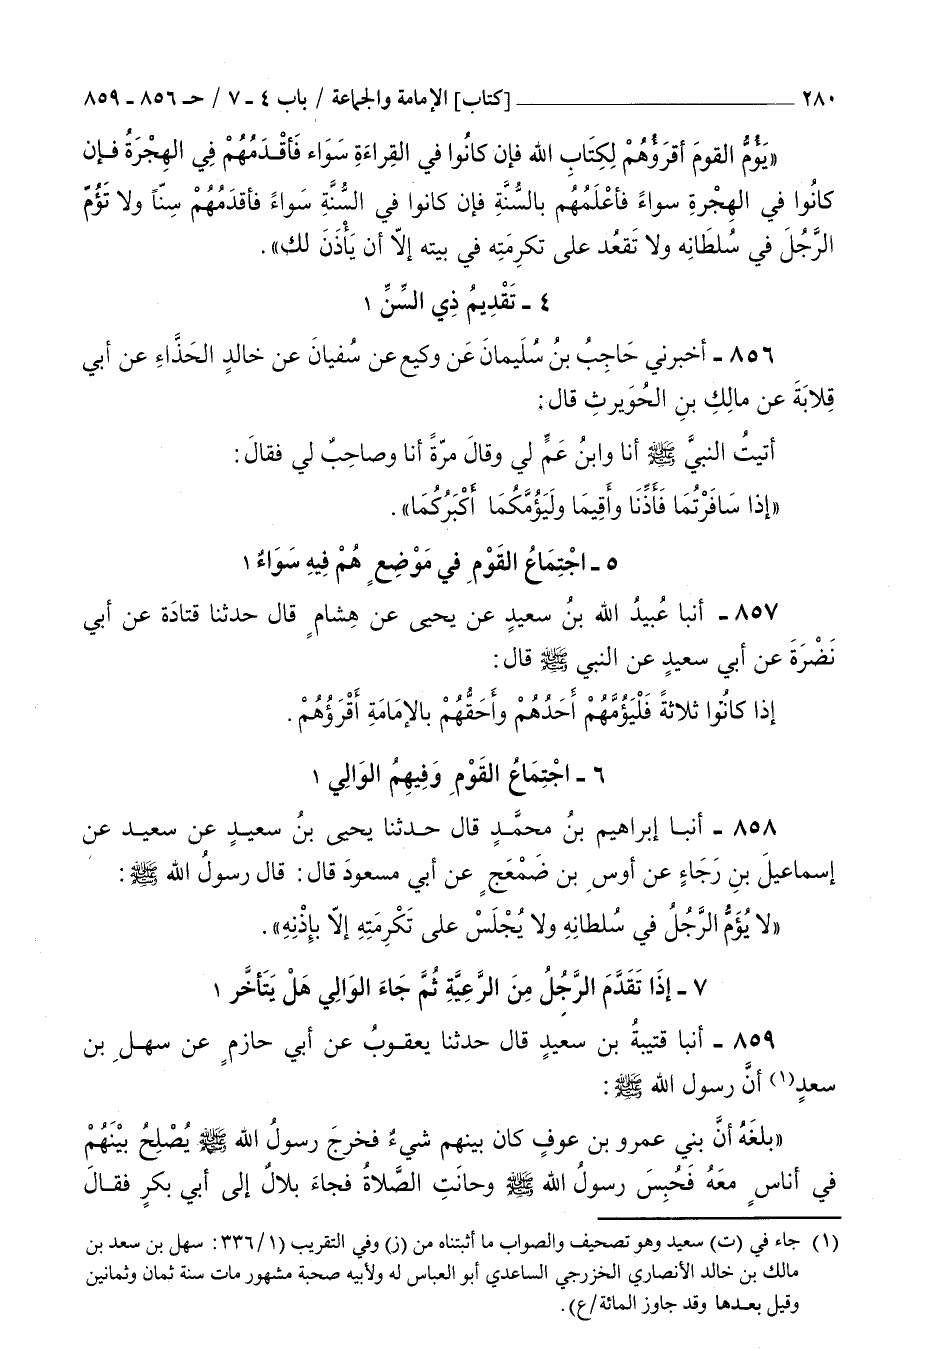 ٢٨٠ ــــــــــــــــــــــــــــــــ [كتاب] الإمامة والجماعة / باب ٤ ـ ٧ / حـ ٨٥٦ ـ ٨٥٩
«يَؤُمُّ القومَ أقرَؤُهُمْ لِكِتَابِ الله فإن كانُوا في القِراءَةِ سَوَاء فَأقْدَمُهُمْ فِي الهِجْرَةُ فإن
كانُوا في الهِجْرةِ سواءً فأعْلَمُهُم بالسُّنَّةِ فإن كانوا في السُّنَّةِ سَواءً فأقدَمُهُمْ سِنّاً ولا تَؤُمّ
الرَّجُلَ في سُلطَانِه ولا تَقعُد على تكرِمَتِه في بيته إلاّ أن يَأْذَنَ لك».
٤ ـ تَقْدِيمُ ذِي السِّنِّ ١
٨٥٦ ـ أخبرني حَاجِبُ بنُ سُلَيمانَ عَن وكيع عن سُفيانَ عن خالدِ الحَذَّاءِ عن أبي
قِلابَةَ عن مالِكِ بنِ الحُوَيرثِ قال:
أتيتُ النبيَّ ﷺ أنا وابنُ عَمٍّ لي وقالَ مرّةً أنا وصاحِبٌ لي فقالَ:
«إذا سَافَرْتُمَا فَأَذِّنَا وأَقِيمَا ولَيَؤُمَّكُمَا أَكْبَرُكُمَا».
٥ ـ اجْتِمَاعُ القَوْمِ في مَوْضِعٍ هُمْ فِيهِ سَوَاءٌ ١
٨٥٧ ـ أنبا عُبيدُ الله بنُ سعيدٍ عن يحيى عن هِشامٍ قال حدثنا قتادَة عن أبي
نَضْرَةَ عن أبي سعيدٍ عن النبي ﷺ قال:
إذا كانُوا ثلاثةً فَلْيَؤُمَّهُمْ أَحَدُهُمْ وأَحَقُّهُمْ بالإمَامَةِ أَقْرَؤُهُمْ.
٦ ـ اجْتِمَاعُ القَوْمِ وَفِيهِمُ الوَالِي ١
٨٥٨ ـ أنبا إبراهيم بنُ محمَّدٍ قال حدثنا يحيى بنُ سعيدٍ عن سعيد عن
إسماعيلَ بنِ رَجَاءٍ عن أوسِ بن ضَمْعَجٍ عن أبي مسعودَ قال: قال رسولُ الله ﷺ:
«لا يُؤَمُّ الرَّجُلُ في سُلطانِهِ ولا يُجْلَسْ على تَكْرِمَتِهِ إلاّ بإِذْنِهِ».
٧ ـ إذَا تَقَدَّمَ الرَّجُلُ مِنَ الرَّعِيَّةِ ثُمَّ جَاءَ الوَالِي هَلْ يَتَأخَّر ١
٨٥٩ ـ أنبا قتيبةُ بن سعيدٍ قال حدثنا يعقوبُ عن أبي حازمٍ عن سهلِ بن
سعدٍ(١) أنَّ رسول الله ﷺ:
«بلغَهُ أنَّ بني عمرو بن عوفٍ كان بينهم شيءٌ فخرجَ رسولُ الله ﷺ يُصْلِحُ بيْنَهُمْ
في أناسٍ معَهُ فَحُبِسَ رسولُ الله ﷺ وحانَتِ الصَّلاةُ فجاءَ بلالٌ إلى أبي بكرٍ فقالَ
(١) جاء في (ت) سعيد وهو تصحيف والصواب ما أثبتناه من (ز) وفي التقريب (٣٣٦/١: سهل بن سعد بن
مالك بن خالد الأنصاري الخزرجي الساعدي أبو العباس له ولأبيه صحبة مشهور مات سنة ثمان وثمانين
وقيل بعدها وقد جاوز المائة/ع).